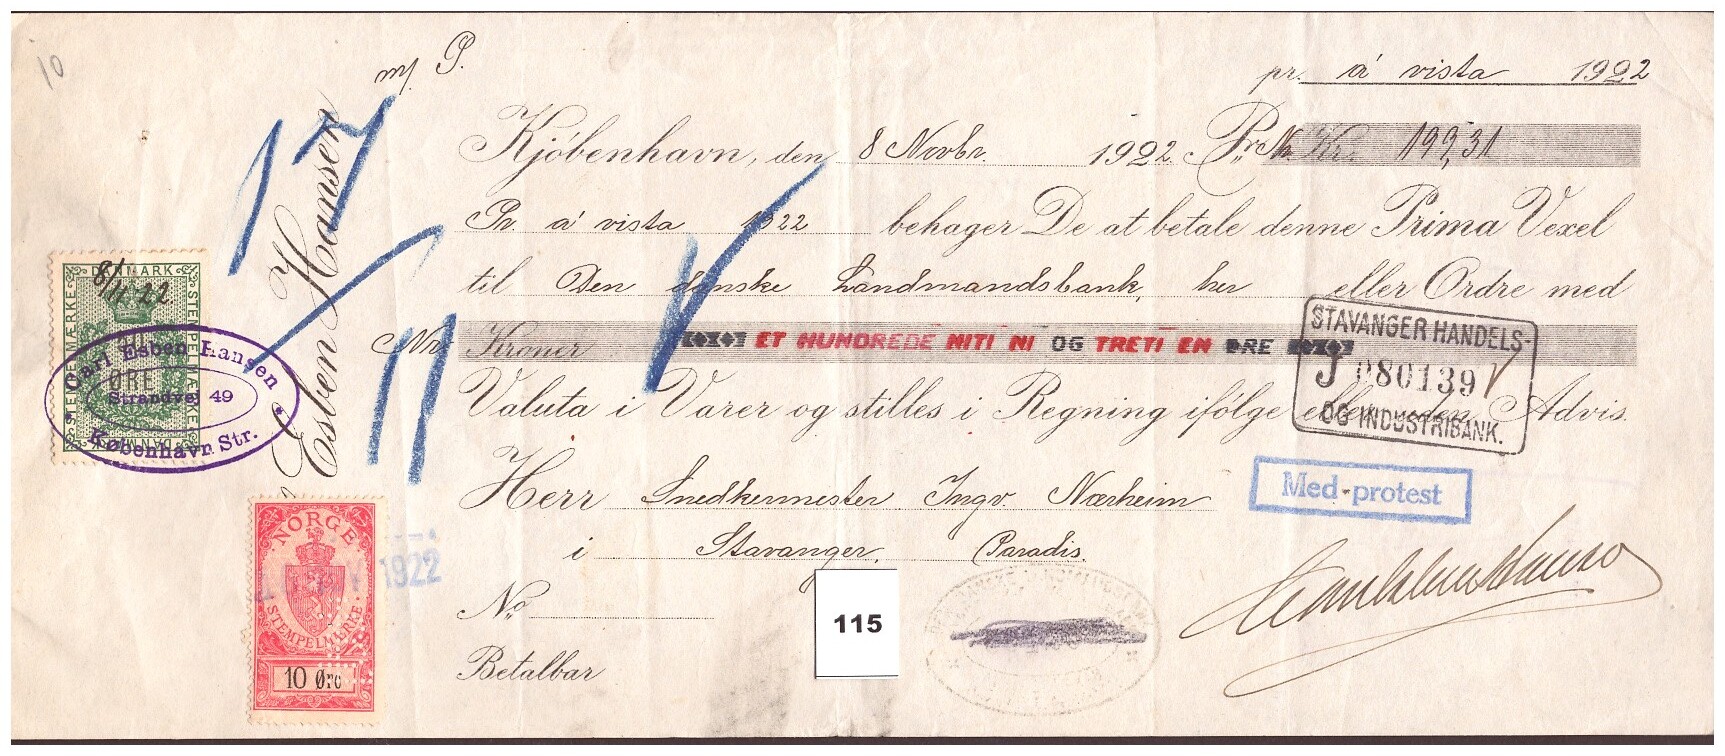 10
m/ P.
pr. á vista 1922
Kjöbenhavn, den 8 Novbr. 1922. Pr. N. Kr. 199,31
Pr. á vista 1922 behager De at betale denne Prima Vexel
til Den danske Landmandsbank, her eller Ordre med
No. Kroner ET HUNDREDE NITI NI OG TRETI EN ØRE
Valuta i Varer og stilles i Regning ifölge eller uden Advis.
Herr Snedkermester Ingv. Nærheim
i Stavanger, Paradis.
No.
Betalbar
Esben Hansen
17
11
DANMARK
STEMPELMÆRKE
STEMPELMÆRKE
DANMARK
8/11 22
ØRE
Carl Esben Hansen
Strandvej 49
København Str.
NORGE
STEMPELMERKE.
10 Øre
1922
STAVANGER HANDELS-
J 080139
OG INDUSTRIBANK.
Med protest
115